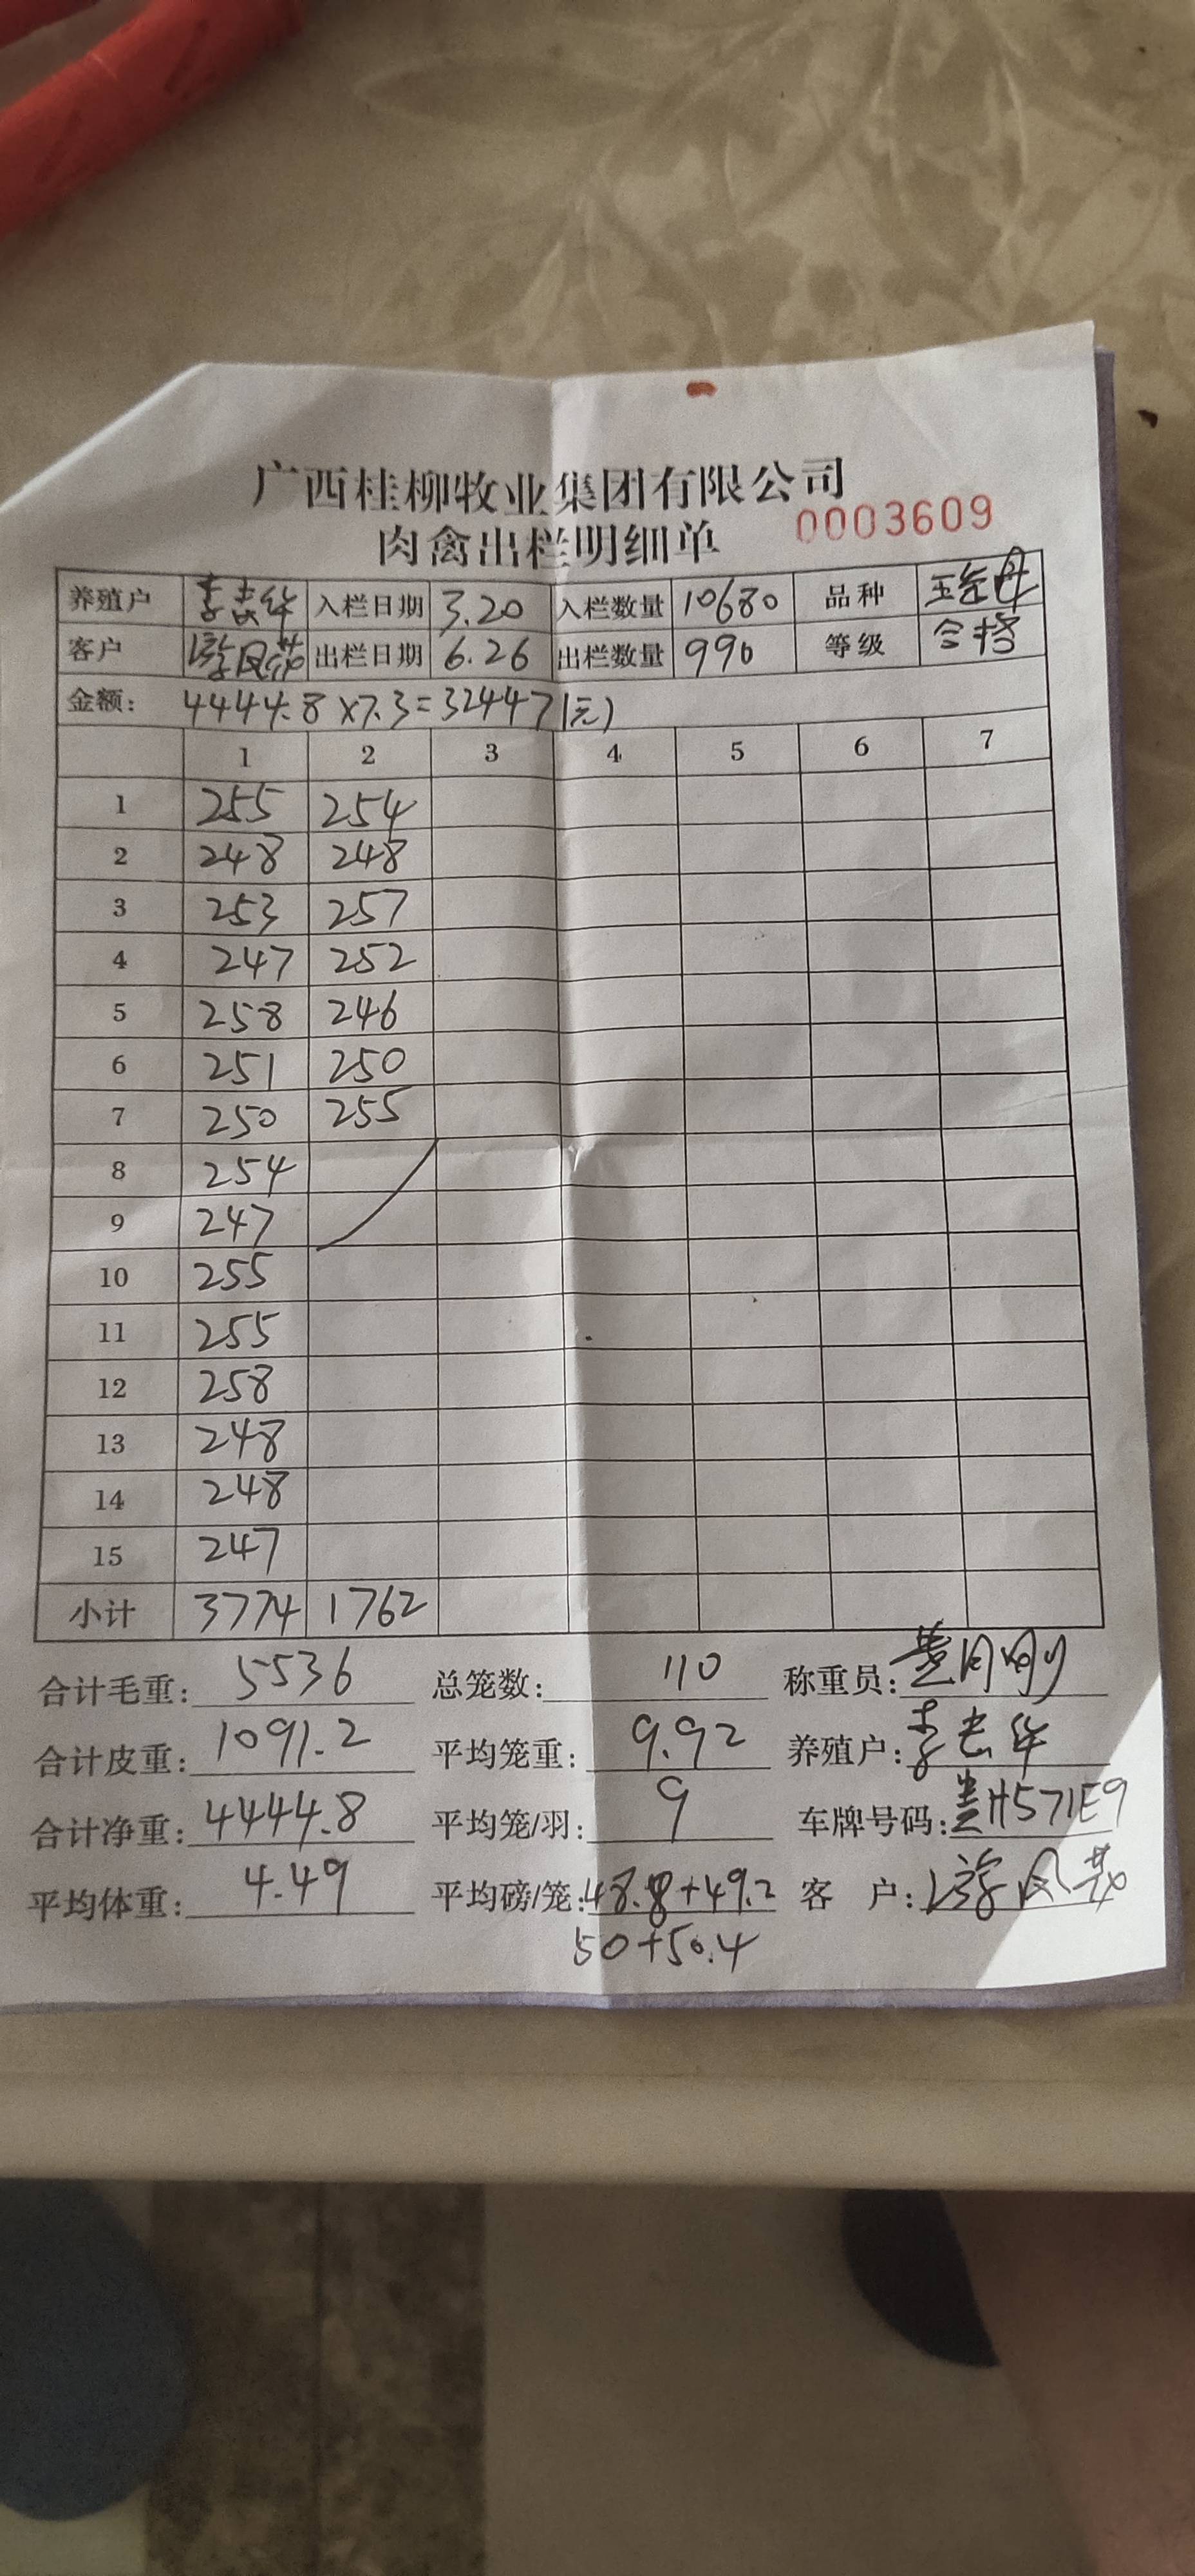 广西桂柳牧业集团有限公司
肉禽出栏明细单 0003609
养殖户 入栏日期 3.20 入栏数量 10680 品种
客户 出栏日期 6.26 出栏数量 990 等级 合格
金额: 4444.8×7.3=32447(元)
1 2 3 4 5 6 7
1 255 254
2 248 248
3 253 257
4 247 252
5 258 246
6 251 250
7 250 255
8 254
9 247
10 255
11 255
12 258
13 248
14 248
15 247
小计 3774 1762
合计毛重: 5536 总笼数: 110 称重员:
合计皮重: 1091.2 平均笼重: 9.92 养殖户:
合计净重: 4444.8 平均笼/羽: 9 车牌号码: 贵H571E9
平均体重: 4.49 平均磅/笼: 48.8+49.2 客 户:
50+50.4